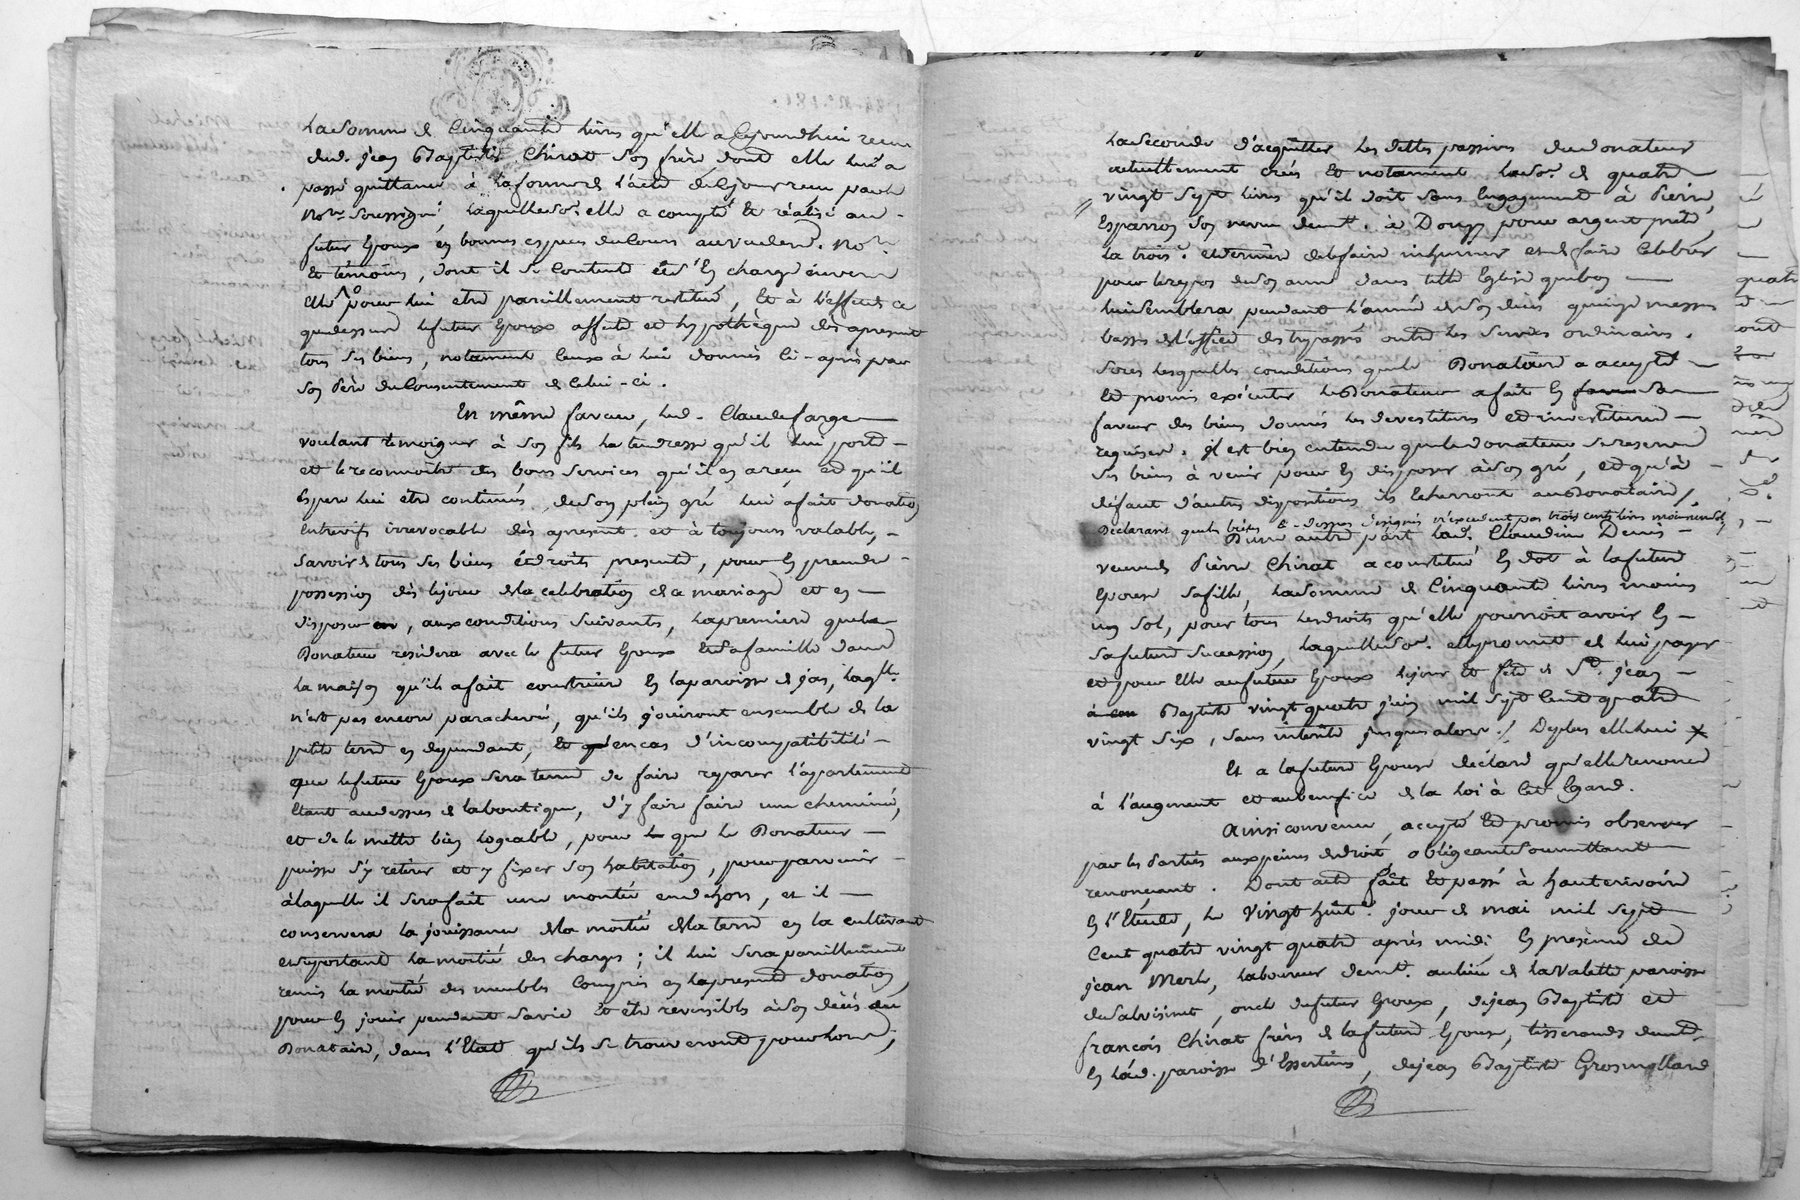 la somme de Cinquante livres qu'elle a Cejourdhui recu
dud. jean Baptiste Chirat son frère dont elle lui a
passé quittance à la forme de l'acte de ce jour recu par le
No.re Soussigné, laquelle so.e elle a compté et réalisé au
futur Epoux en bonnes especes du Cours au vu dud. No.re
et témoins, dont il se Contente et s'en charge envers
elle pour lui etre pareillement restitué, et à l'effet de ce
que dessus le futur Epoux affecte et hypothèque dès apresent
tous ses biens, notament Ceux à lui donnés Ci-après par
son Père du Consentement de Celui-ci.
En même faveur, led. Claude farge
voulant temoigner à son fils la tendresse qu'il lui porte
et le reconnoitre des bons services qu'il en a recu et qu'il
Espere lui etre continués, de son plein gré lui a fait donation
Entrevifs irrevocable dès apresent et à toujours valable,
savoir de tous ses biens et droits presents, pour en prendre
possession dès le jour de la celebration de ce mariage et en
disposer, aux conditions suivantes, la premiere que le
Donateur residera avec le futur Epoux et sa famille dans
la maison qu'ils a fait construire en la paroisse de jas, laq.lle
n'est pas encore parachevée, qu'ils jouiront ensemble de la
petite terre en dependant, et qu'en cas d'incompatibilité
que le futur Epoux sera tenu de faire reparer l'apartement
Etant audessus de la boutique, d'y faire faire une cheminée,
et de le mettre bien logeable, pour que le Donateur
puisse s'y retirer et y fixer son habitation, pour parvenir
à laquelle il sera fait une montée en dehors, et il
conservera la jouissance de la moitié de la terre en la cultivant
et suportant la moitié des charges; il lui sera pareillement
remis la moitié des meubles Compris en la presente donation
pour en jouir pendant sa vie et etre reversibles à son décès au
Donataire, dans l'Etat qu'ils se trouveront pour lors;
la seconde d'acquitter les dettes passives du donateur
actuellement créés et notament la so.e de quatre
vingt sept livres qu'il doit sans Engagement à Pierre
Esparron son neveu dem.t à Donzy pour argent preté,
la trois.e et derniere de le faire inhumer et de faire Celebrer
pour le repos de son ame dans telle Eglise que bon
lui semblera pendant l'année de son décès quinze messes
basses de l'office des trepassés outre les services ordinaires.
sous lesquelles conditions que le Donataire a accepté
et promis exécuter le Donateur a fait en sa
faveur des biens donnés les devestiture et investiture
requises. il est bien entendu que le donateur se reserve
ses biens à venir pour en disposer à son gré, et qu'à
défaut d'autres dispositions ils lecherront au Donataire/
Déclarant que les biens ci-dessus designés n'excedent pas trois cents livres
D'une autre part lad. Claudine Denis
veuve de Pierre Chirat a constitué en dot à la future
Epouse sa fille, la somme de Cinquante livres moins
un sol, pour tous les droits qu'elle pourroit avoir en
sa future succession, laquelle so.e elle promet de lui payer
et pour elle au futur Epoux le jour et fête de St. jean
Baptiste vingt quatre juin mil sept Cent quatre
vingt six, sans interets jusques alors./ De plus elle lui
Et a la future Epouse déclaré qu'elle renonce
à l'augment et au benefice de la loi à Cet Egard.
Ainsi convenu, accepté et promis observer
par les Parties aux peines de droit, obligeant soumettant
renonçant. Dont acte fait et passé à hauterivoire
En l'Etude, le vingt huit.e jour de mai mil sept
Cent quatre vingt quatre après midi En présence de
jean Merle, laboureur dem.t au lieu de la valette paroisse
de Salvisinet, oncle du futur Epoux, de jean Baptiste et
francois Chirat frères de la future Epouse, tisserands dem.t
En lad. paroisse d'Essertines, de jean Baptiste Grosmolland